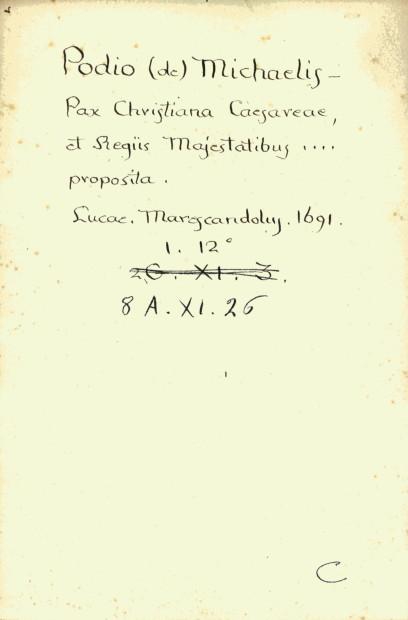 Podio (de) Michaelis —
Pax Christiana Caesareae,
et Regiis Majestatibus ....
proposita.
Lucae. Marescandolus. 1691.
1. 12°
2G. XI. 3.
8 A. XI. 26
C